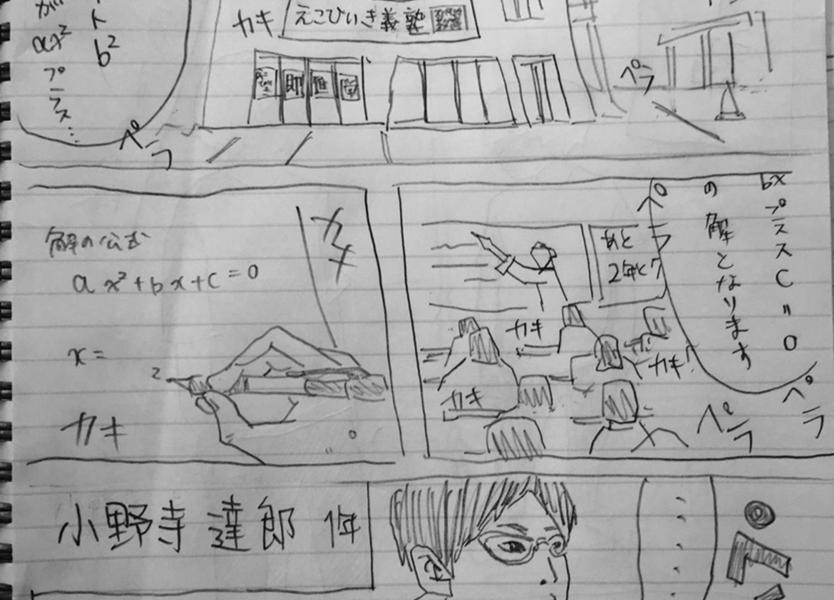 ペラ
えこびいき義塾
カキ
b²
ax²
プラス…
ペラ
bxプラスC=0
の解となります
ペラ
ペラ
ペラ
あと
2年と7
カキ
カキ
カキ
カキ
解の公式
ax²+bx+c=0
x=
2
カキ
小野寺達郎 1年